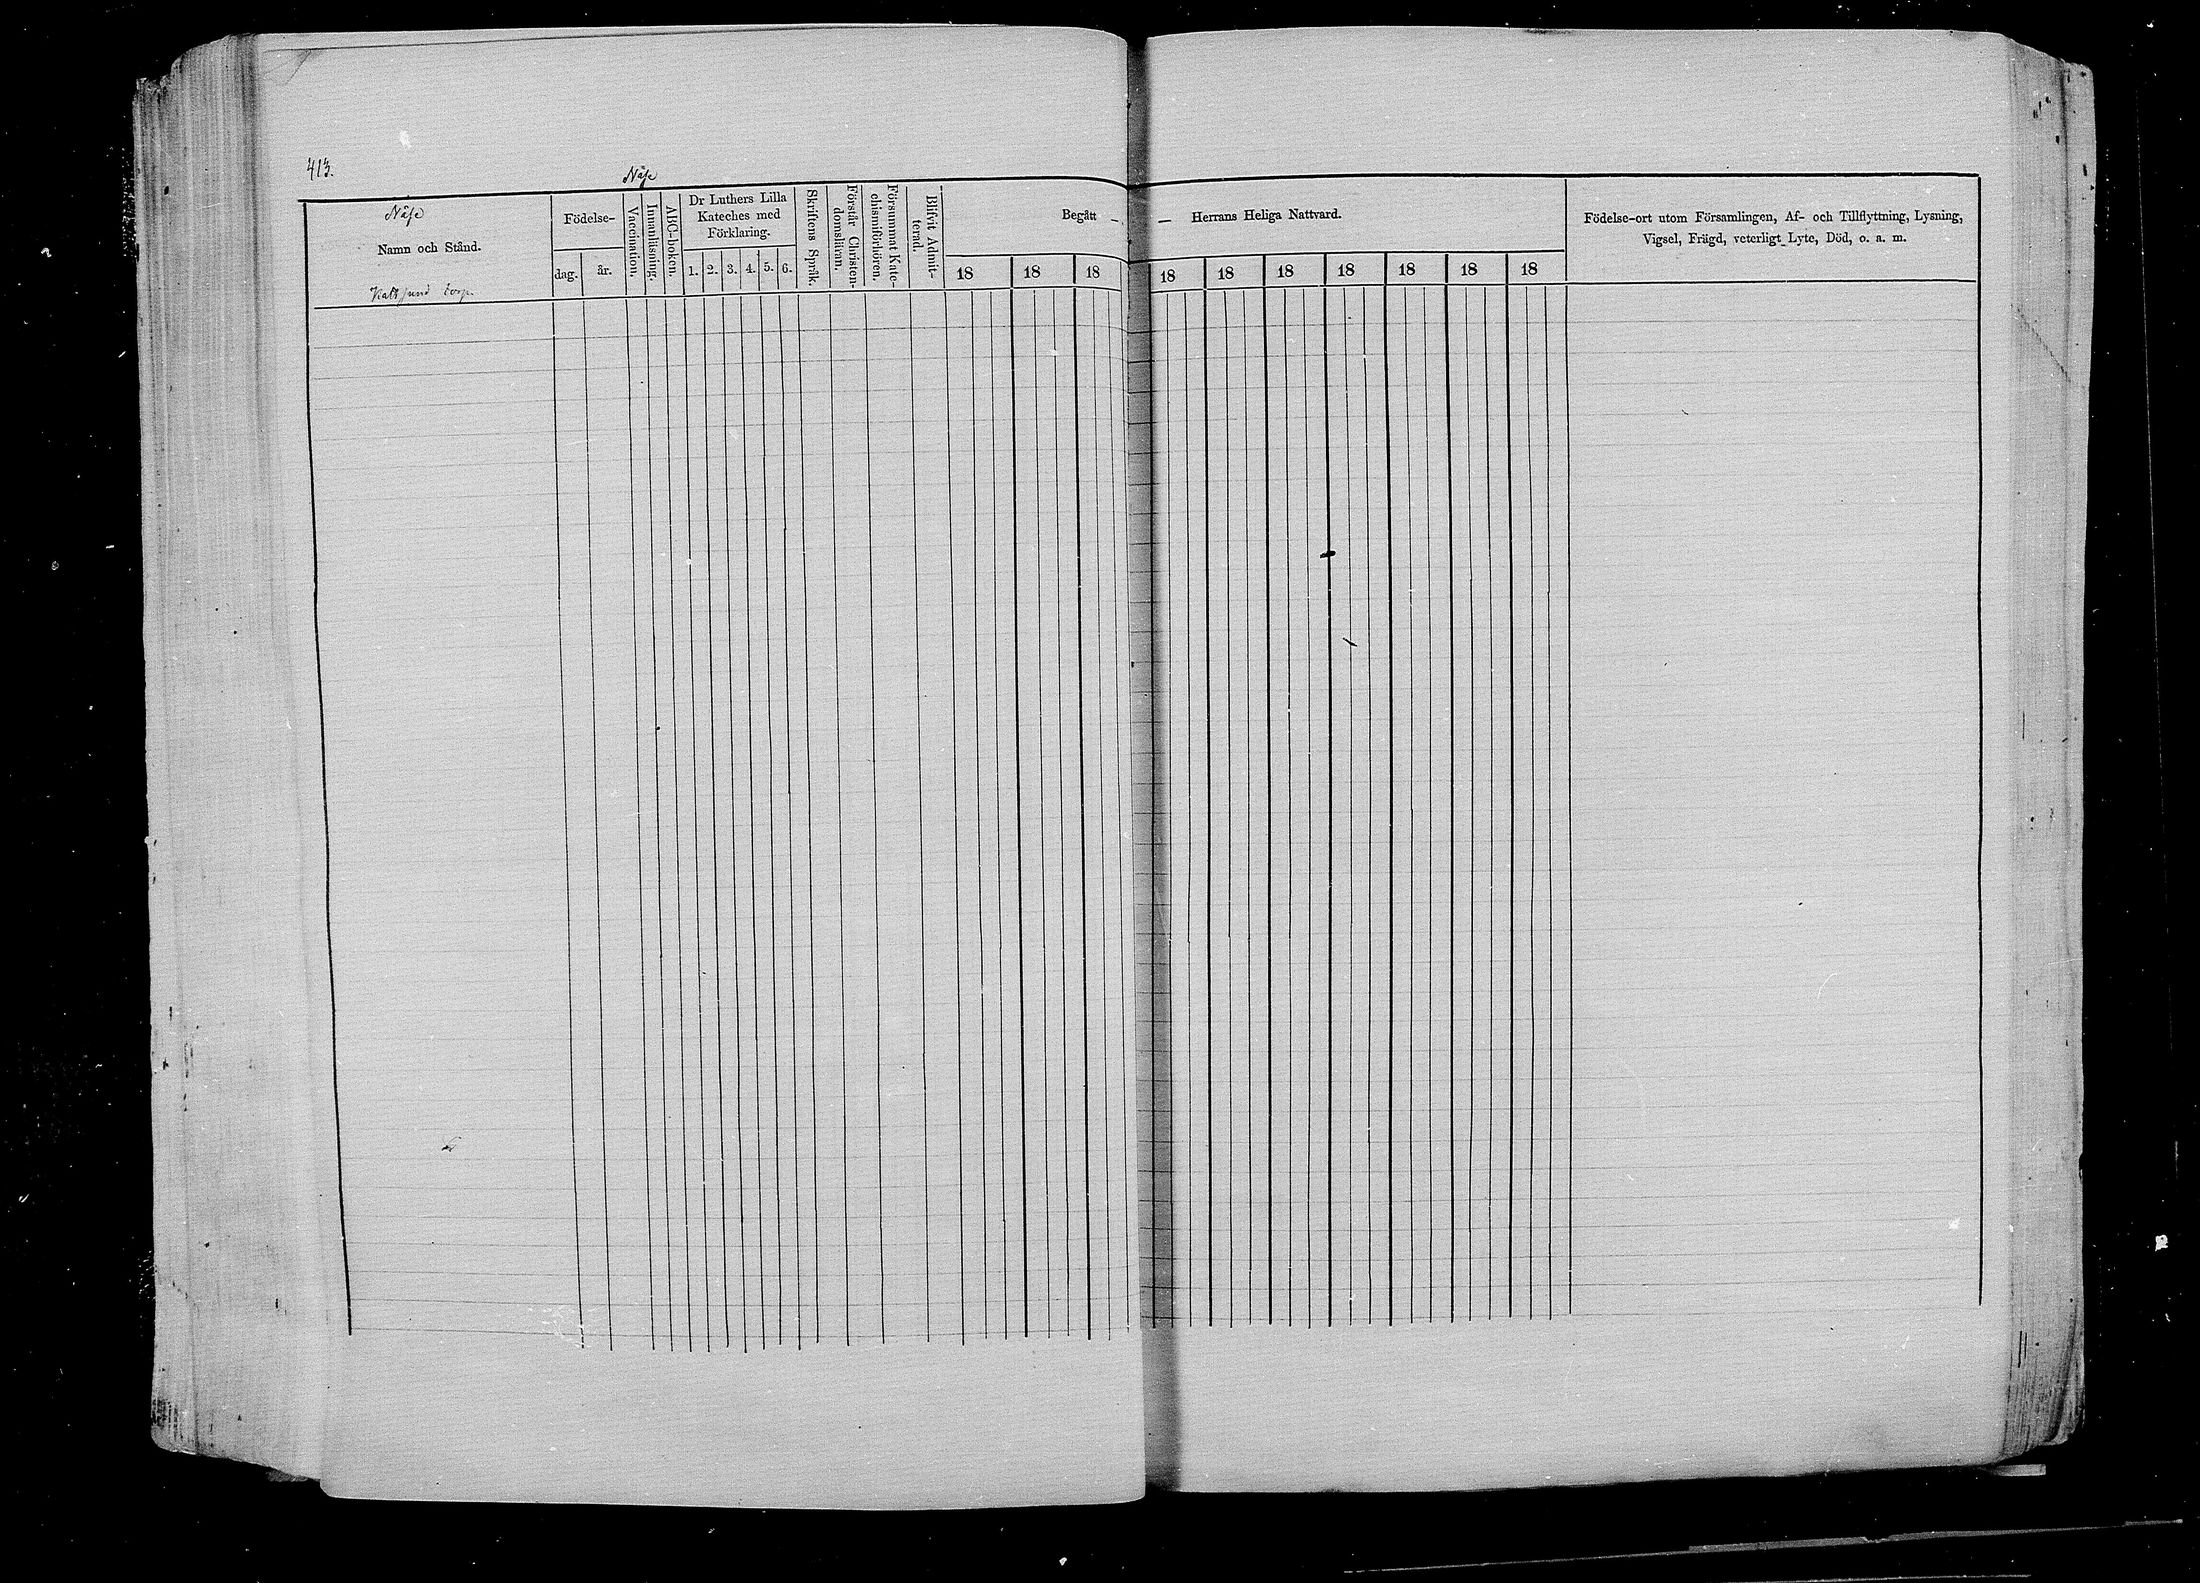 413.
Näse
Näse
Namn och Stånd.
torp.
Födelse-
dag. år.
Vaccination.
Innanläsning.
ABC-boken.
Dr Luthers Lilla
Kateches med
Förklaring.
1. 2. 3. 4. 5. 6.
Skriftens Språk.
Förstår Christen-
domsläran.
Försummat Kate-
chismiförhören.
Blifvit Admit-
terad.
Begått —
18 18 18
— Herrans Heliga Nattvard.
18 18 18 18 18 18 18
Födelse-ort utom Församlingen, Af- och Tillflyttning, Lysning,
Vigsel, Frägd, veterligt Lyte, Död, o. a. m.